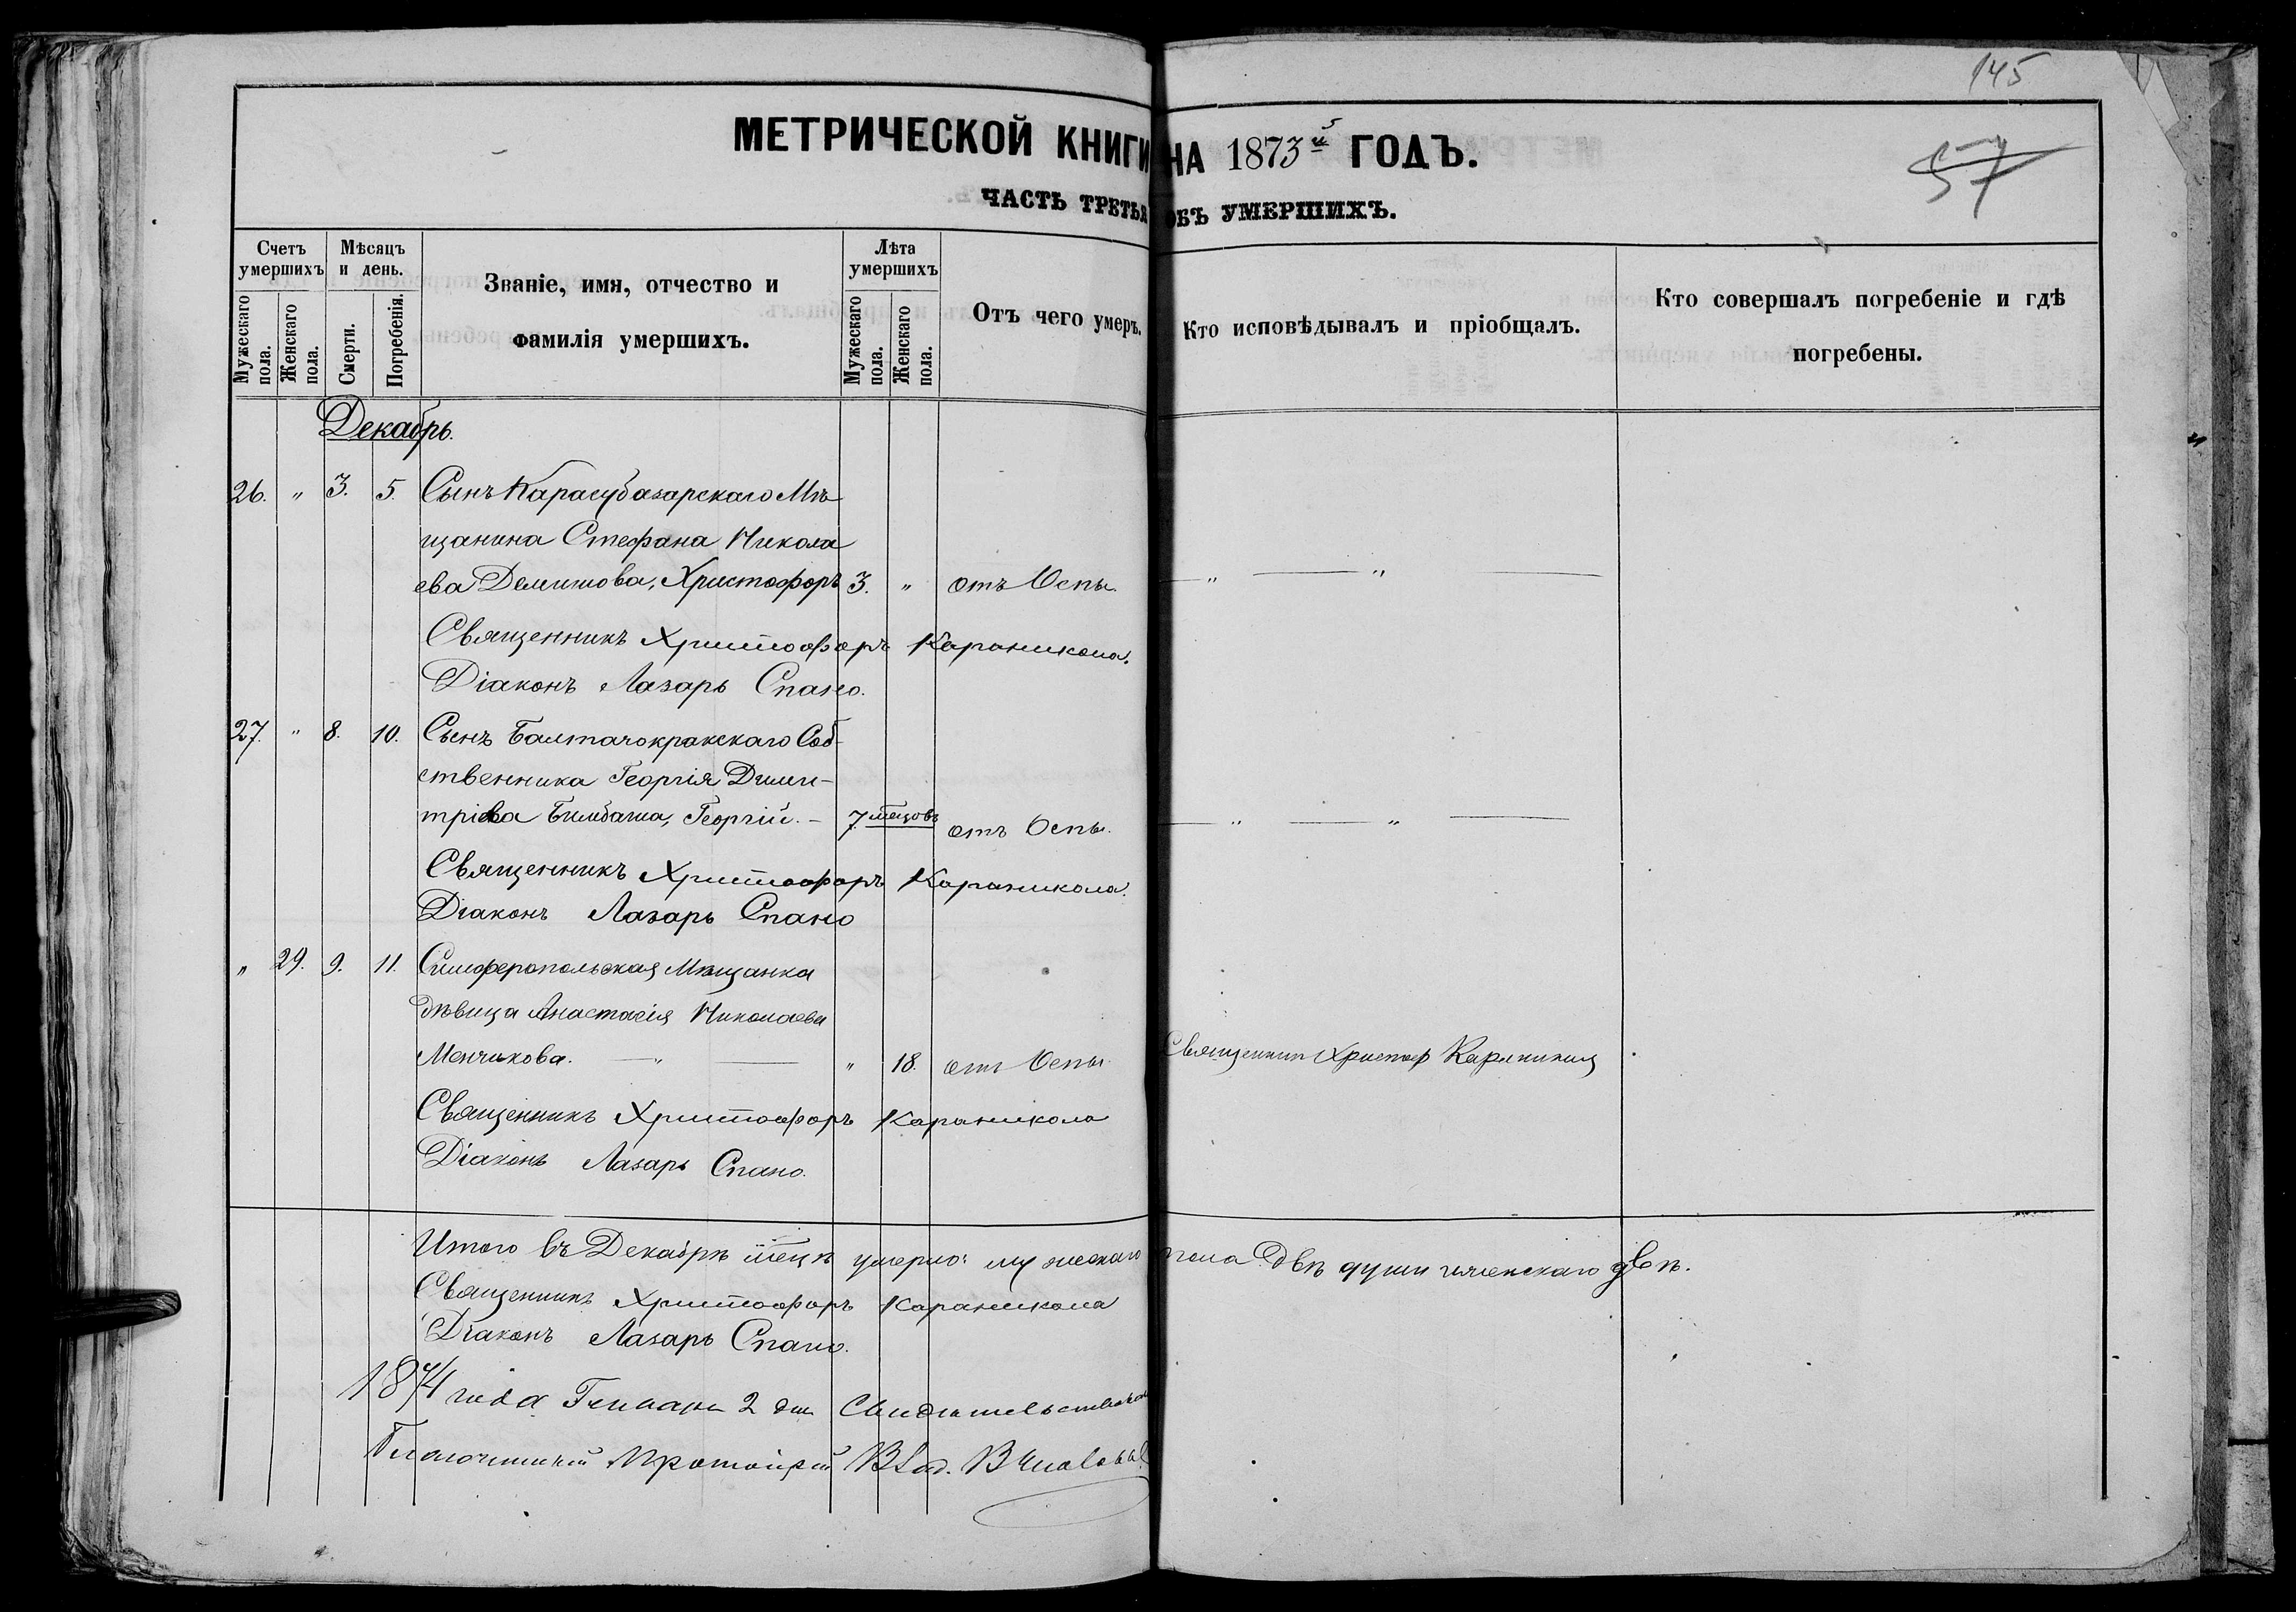 145
57
МЕТРИЧЕСКОЙ КНИГИ НА 1873й ГОДЪ.
ЧАСТЬ ТРЕТЬЯ ОБЪ УМЕРШИХЪ.
Счетъ умершихъ
Мужескаго пола.
Женскаго пола.
Мѣсяцъ и день.
Смерти.
Погребенія.
Званіе, имя, отчество и
фамилія умершихъ.
Лѣта умершихъ
Мужескаго пола.
Женскаго пола.
Отъ чего умеръ.
Кто исповѣдывалъ и пріобщалъ.
Кто совершалъ погребеніе и гдѣ
погребены.
Декабрь.
26. " 3. 5. Сынъ Карасубазарскаго Мѣ
щанина Стефана Никола
ева Демишова, Христофоръ 3. " отъ Оспы. " "
Священникъ Христофоръ Караникола.
Діаконъ Лазарь Спано.
27. " 8. 10. Сынъ Балтачокракскаго Соб-
ственника Георгія Дими-
тріева Бимбаша, Георгій. - 7. мѣсцовъ отъ Оспы. " "
Священникъ Христофоръ Караникола.
Діаконъ Лазарь Спано
" 29. 9. 11. Симферопольская Мѣщанка
дѣвица Анастасія Николаева
Менчикова. " " 18. отъ Оспы Священникъ Христоф Караникола
Священникъ Христофоръ Караникола
Діаконъ Лазарь Спано.
Итого въ Декабрѣ мѣцѣ умерло: мужескаго пола двѣ души женскаго двѣ.
Священникъ Христофоръ Караникола
Діаконъ Лазарь Спано.
1874 года Генваря 2 дня Свидѣтельствовалъ
Благочинный Протоіерей Влад.